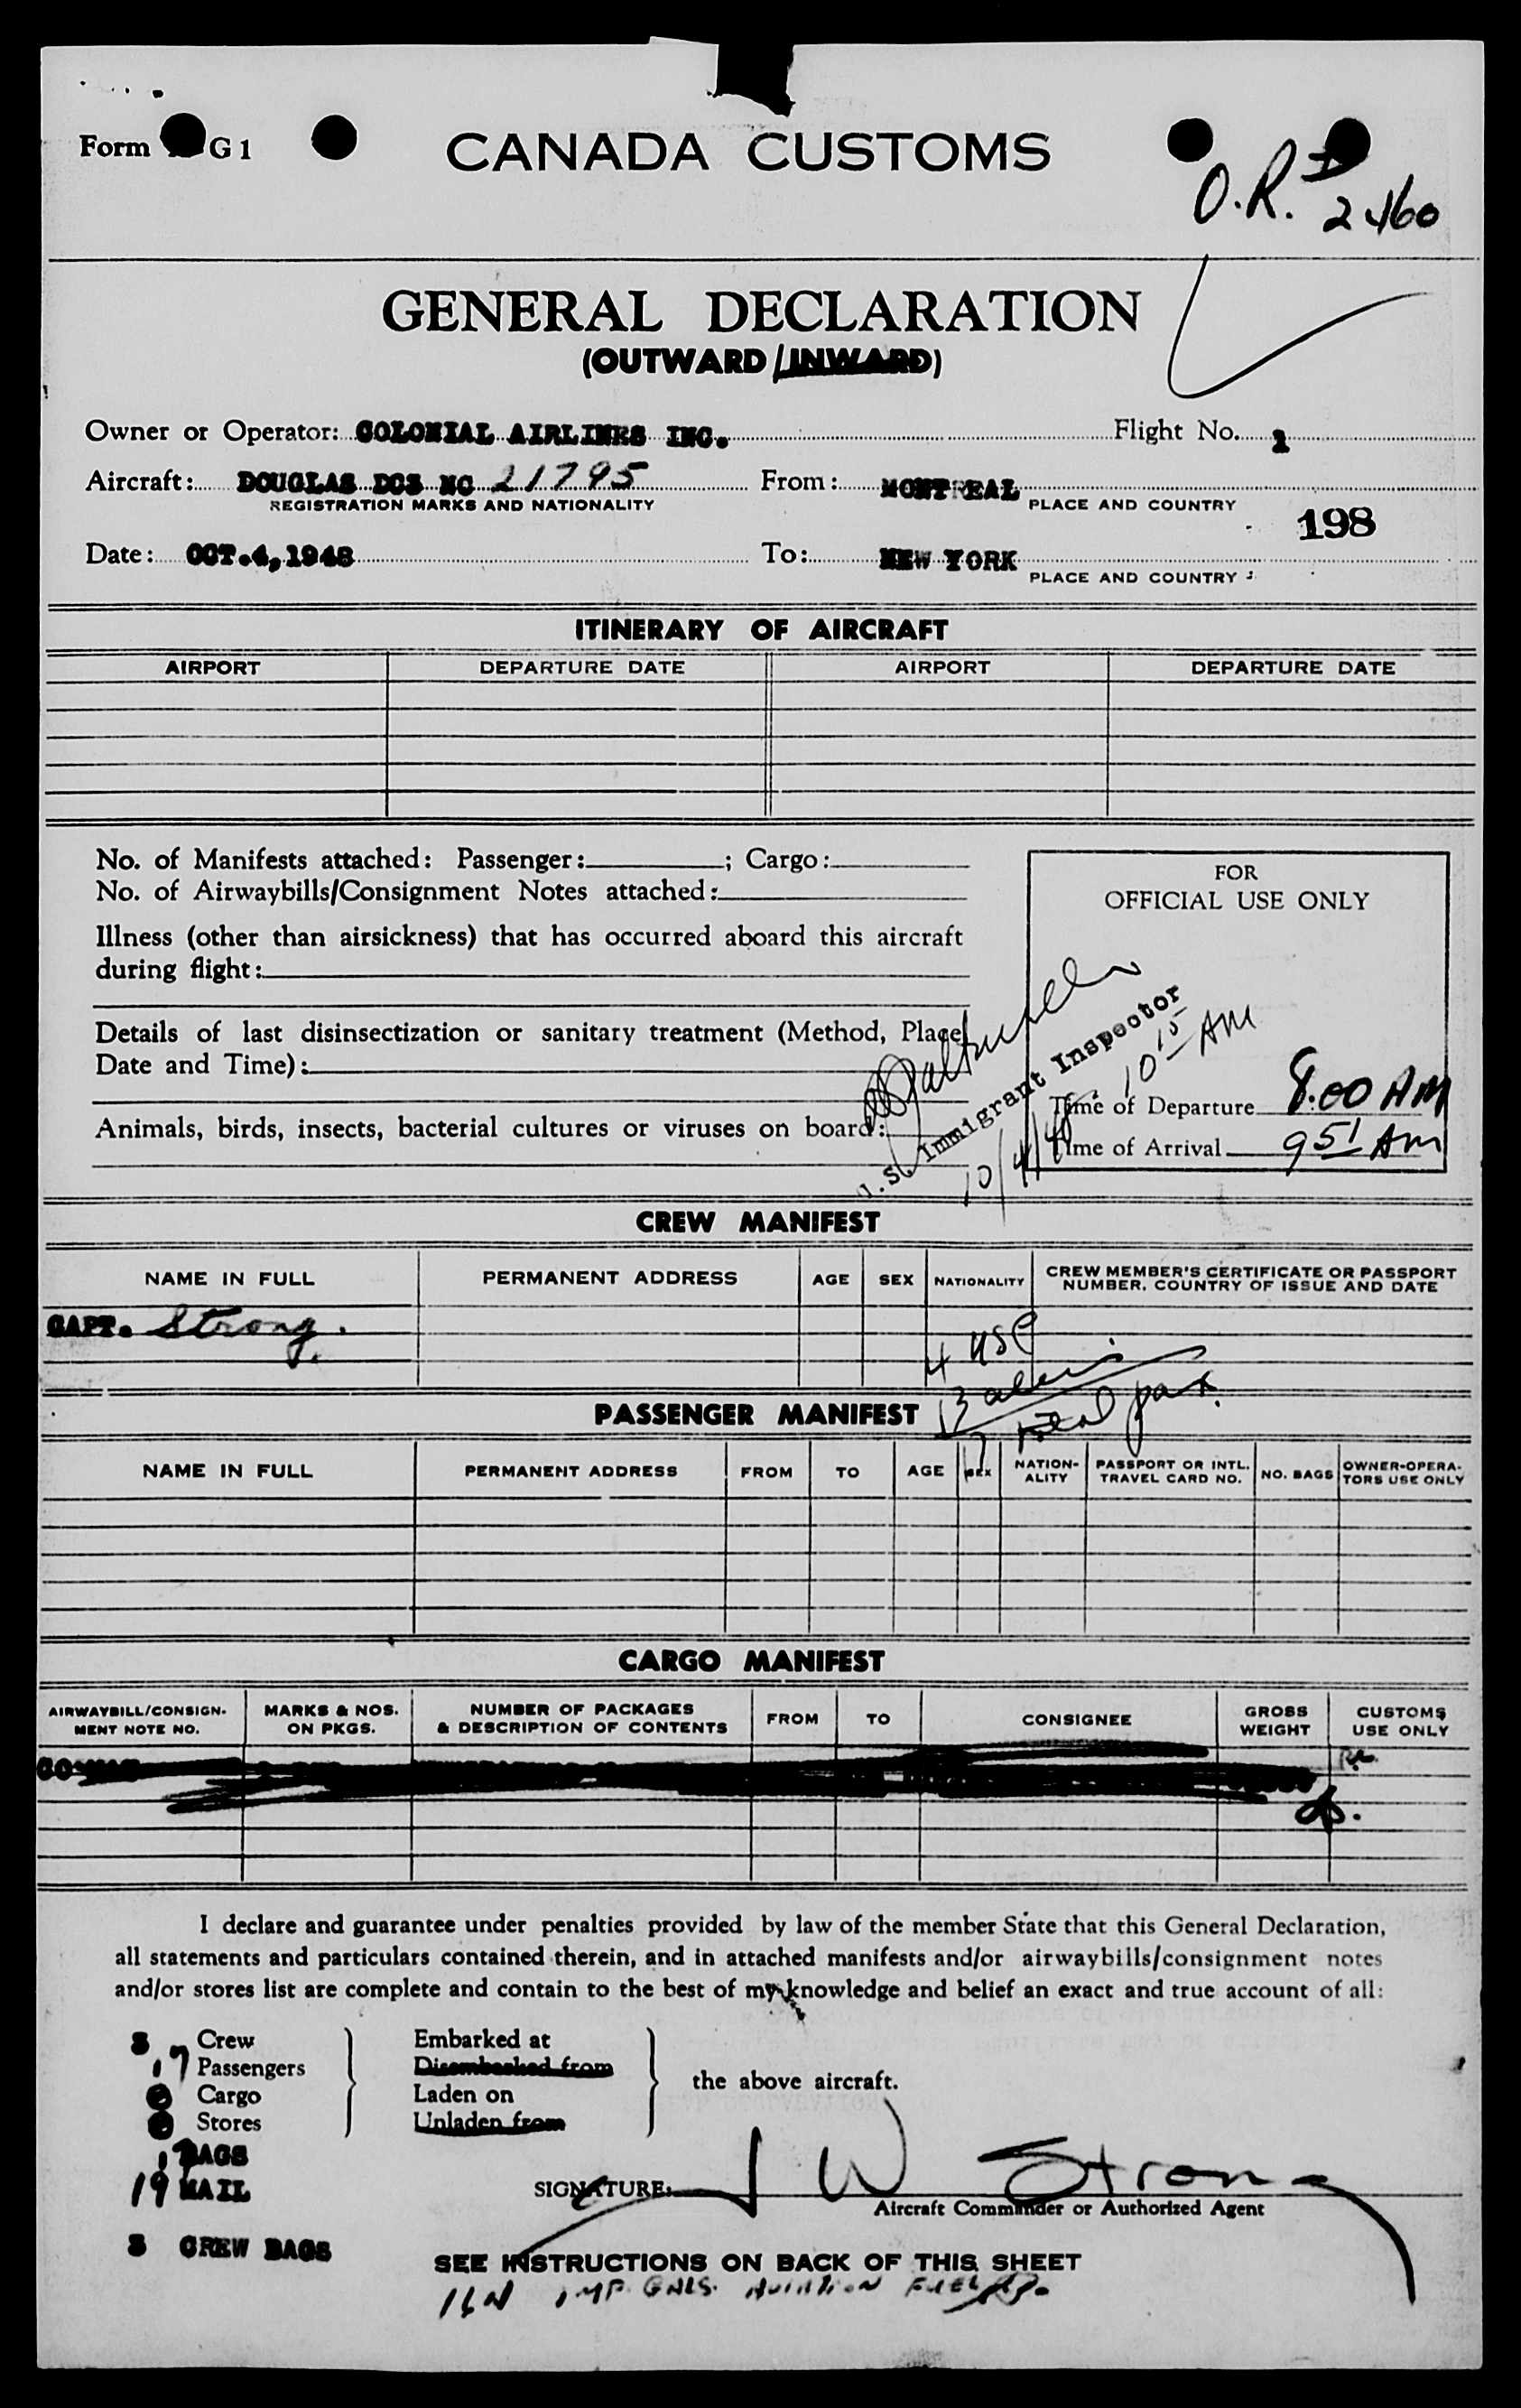 Form G 1
CANADA CUSTOMS
O.R.
GENERAL DECLARATION
(OUTWARD / INWARD)
Owner or Operator: COLONIAL AIRLINES INC. Flight No. 1
Aircraft: DOUGLAS DC3 NC 21795 From: MONTREAL
REGISTRATION MARKS AND NATIONALITY PLACE AND COUNTRY
198
Date: OCT.4,1948 To: NEW YORK
PLACE AND COUNTRY
ITINERARY OF AIRCRAFT
AIRPORT DEPARTURE DATE AIRPORT DEPARTURE DATE
No. of Manifests attached: Passenger: ; Cargo:
No. of Airwaybills/Consignment Notes attached:
Illness (other than airsickness) that has occurred aboard this aircraft
during flight:
Details of last disinsectization or sanitary treatment (Method, Place,
Date and Time):
Animals, birds, insects, bacterial cultures or viruses on board:
FOR
OFFICIAL USE ONLY
U.S. Immigrant Inspector
10/4/48 10 15 AM
Time of Departure 8:00 AM
Time of Arrival 9 51 AM
CREW MANIFEST
NAME IN FULL PERMANENT ADDRESS AGE SEX NATIONALITY CREW MEMBER'S CERTIFICATE OR PASSPORT
NUMBER, COUNTRY OF ISSUE AND DATE
CAPT. Strong.
4 USC
13 aliens
17 total pax.
PASSENGER MANIFEST
NAME IN FULL PERMANENT ADDRESS FROM TO AGE SEX NATION-
ALITY PASSPORT OR INTL.
TRAVEL CARD NO. NO. BAGS OWNER-OPERA-
TORS USE ONLY
CARGO MANIFEST
AIRWAYBILL/CONSIGN-
MENT NOTE NO. MARKS & NOS.
ON PKGS. NUMBER OF PACKAGES
& DESCRIPTION OF CONTENTS FROM TO CONSIGNEE GROSS
WEIGHT CUSTOMS
USE ONLY
I declare and guarantee under penalties provided by law of the member State that this General Declaration,
all statements and particulars contained therein, and in attached manifests and/or airwaybills/consignment notes
and/or stores list are complete and contain to the best of my knowledge and belief an exact and true account of all:
3 Crew
17 Passengers
Cargo
Stores
Embarked at
Disembarked from
Laden on
Unladen from
the above aircraft.
BAGS
19 MAIL
3 CREW BAGS
SIGNATURE: J W Strong
Aircraft Commander or Authorized Agent
SEE INSTRUCTIONS ON BACK OF THIS SHEET
IMP GALS. AVIATION FUEL